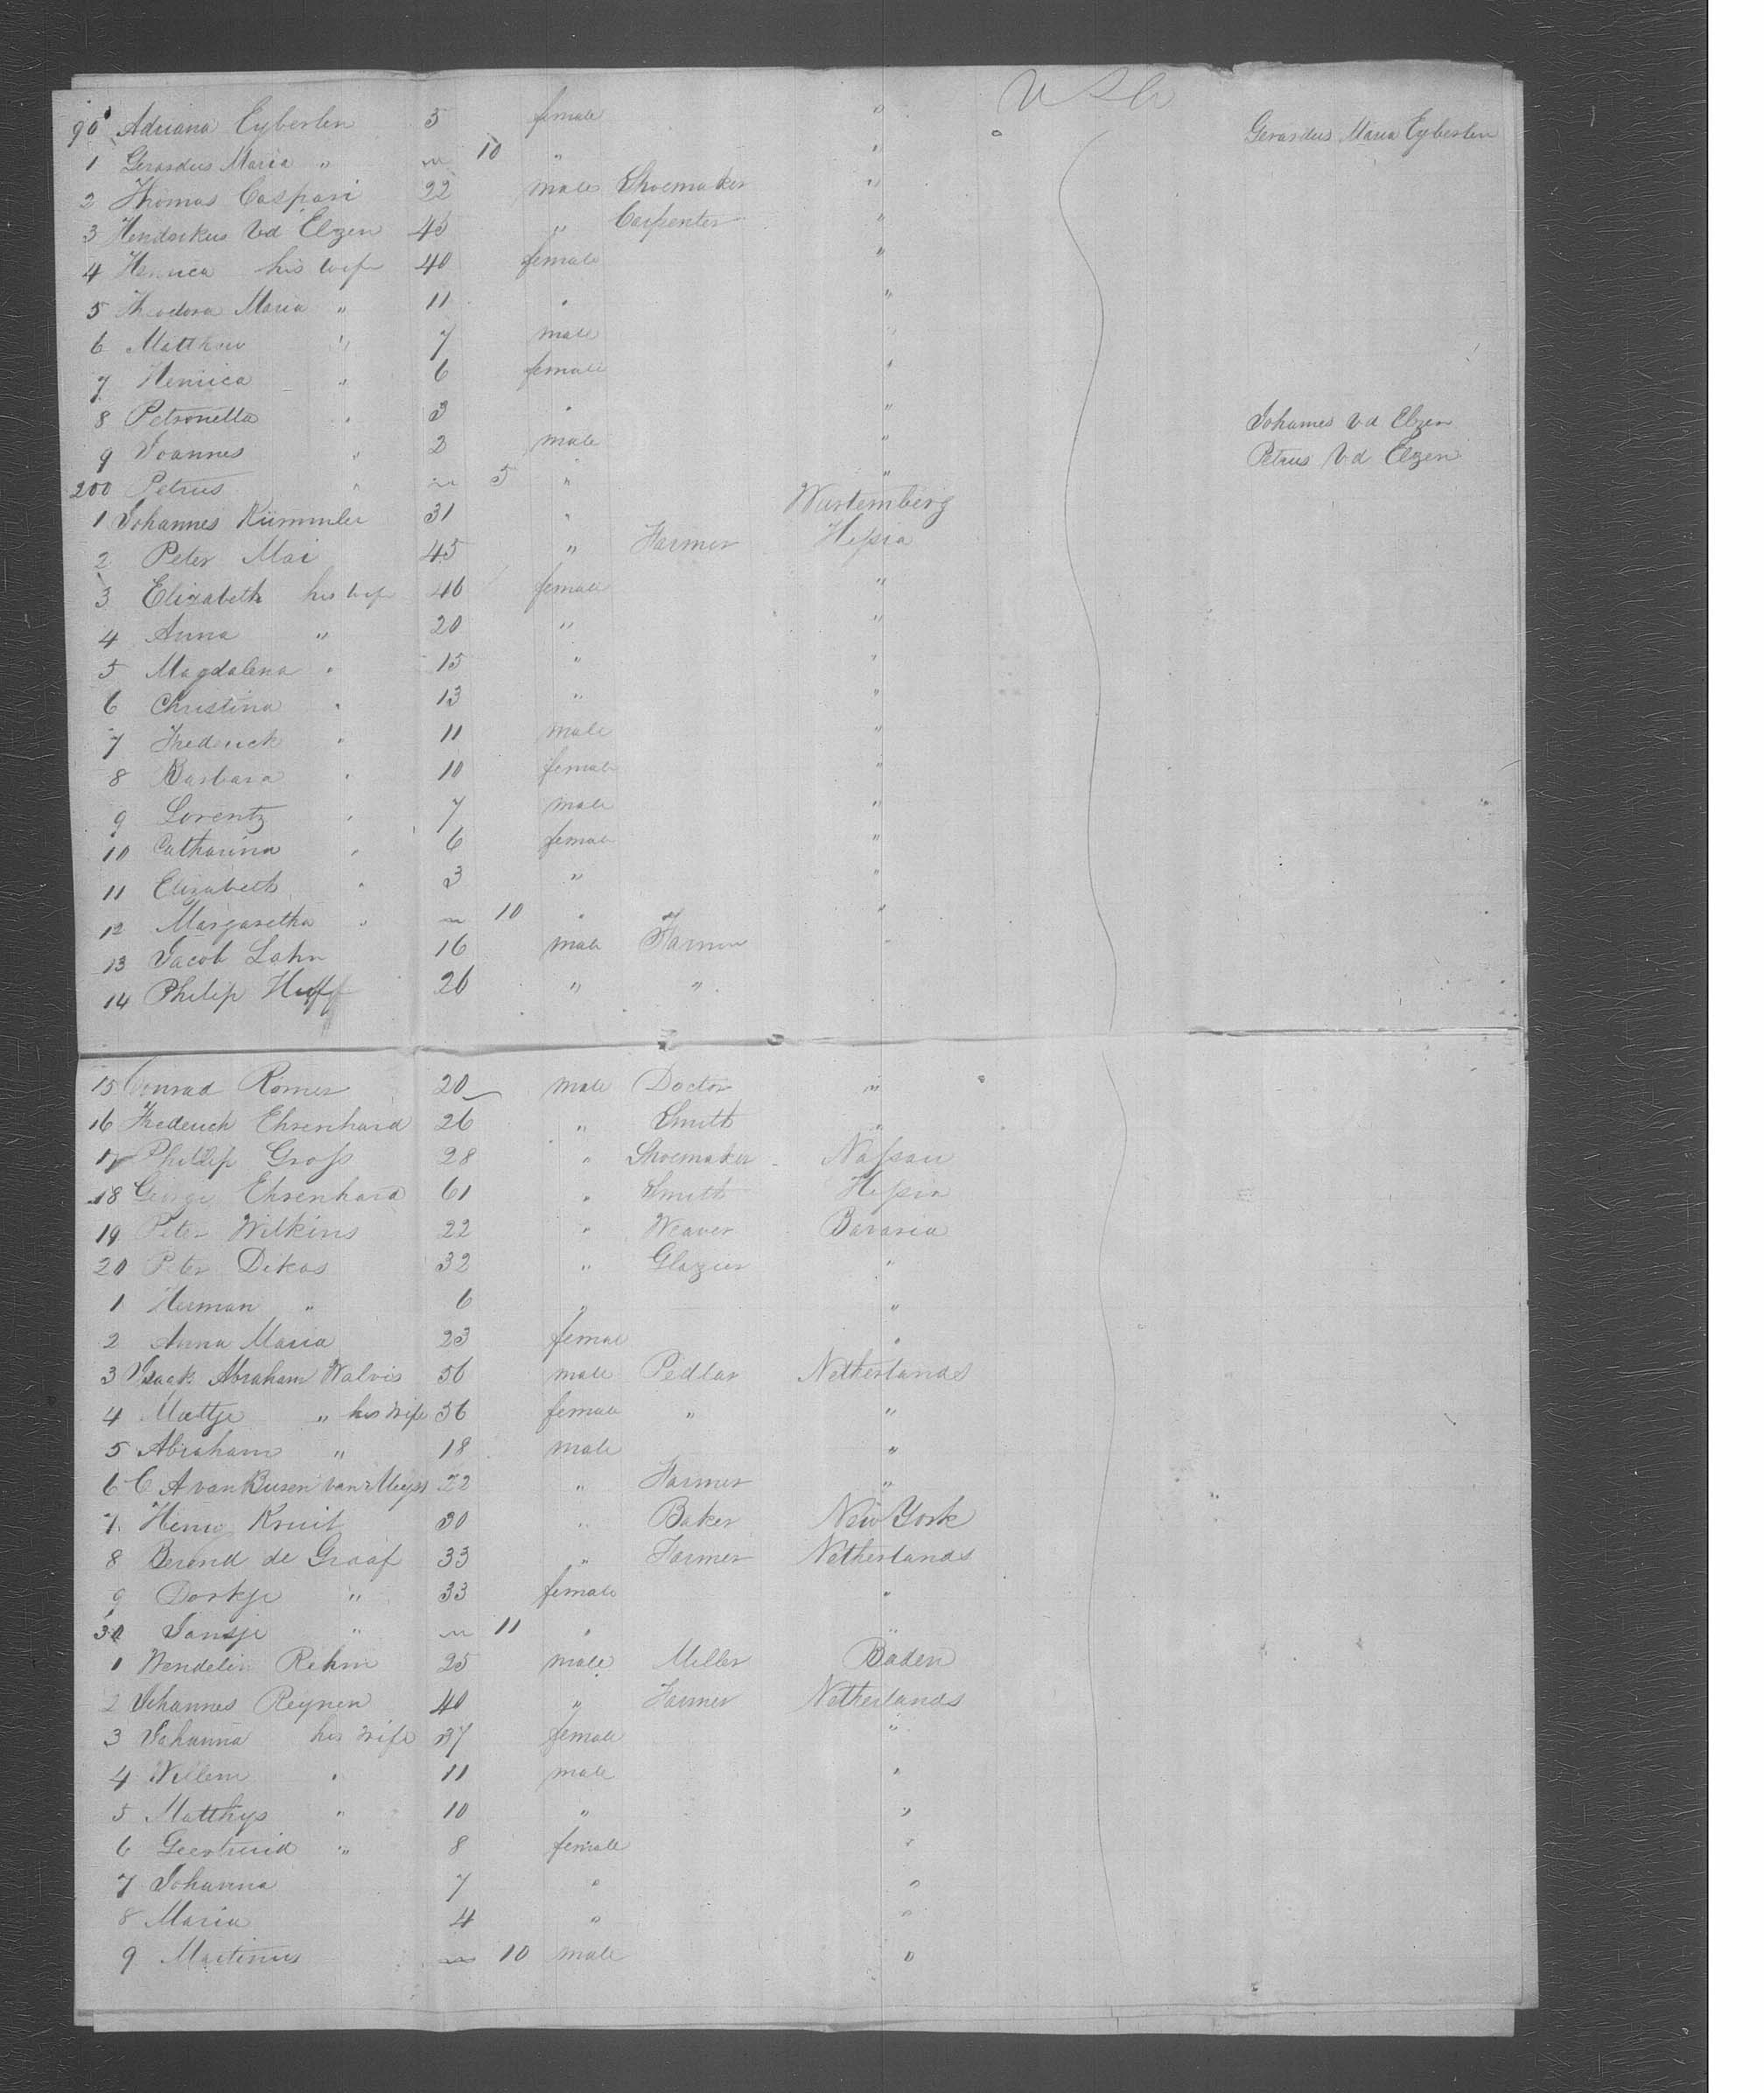 U S A
90 Adriana Eyberlen 5 female "
Gerardus Maria Eyberlen
1 Gerardus Maria " 10 " "
2 Thomas Caspari 22 male Shoemaker "
3 Hendrikus Vd Elzen 45 " Carpenter "
4 Henrica his wife 40 female "
5 Theodora Maria " 11 " "
6 Matthew " 7 male "
7 Henrica " 6 female "
8 Petronella " 3 " "
Johannes Vd Elzen
9 Joannes " 2 male "
Petrus Vd Elzen
200 Petrus " 5 " "
1 Johannes Kümmler 31 " Wurtemberg
2 Peter Mai 45 " Farmer Hessia
3 Elizabeth his wife 46 female "
4 Anna " 20 " "
5 Magdalena " 15 " "
6 Christina " 13 " "
7 Frederick " 11 male "
8 Barbara " 10 female "
9 Lorentz " 7 male "
10 Catharina " 6 female "
11 Elizabeth " 3 " "
12 Margaretha " 10 " "
13 Jacob Lahn 16 male Farmer "
14 Philip Huff 26 " "
15 Conrad Romer 20 male Doctor "
16 Frederick Ehrenhard 26 " Smith "
17 Phillip Gross 28 " Shoemaker Nassau
18 George Ehrenhard 61 " Smith Hessia
19 Peter Wilkins 22 " Weaver Bavaria
20 Peter Dekas 32 " Glazier "
1 Herman " 6 " "
2 Anna Maria 23 female "
3 Isack Abraham Walvis 56 male Pedlar Netherlands
4 Mattje " his wife 56 female " "
5 Abraham " 18 male "
6 C A van Buren van 22 " Farmer "
7 Henry Kruit 30 " Baker New York
8 Berend de Graaf 33 " Farmer Netherlands
9 Dorkje " 33 female "
30 Jansje " 11 " "
1 Wendelin Rehm 25 male Miller Baden
2 Johannes Reynen 40 " Farmer Netherlands
3 Johanna his wife 37 female "
4 Willem " 11 male "
5 Matthys " 10 " "
6 Geertruid " 8 female "
7 Johanna 7 " "
8 Maria 4 " "
9 Martinus 10 male "